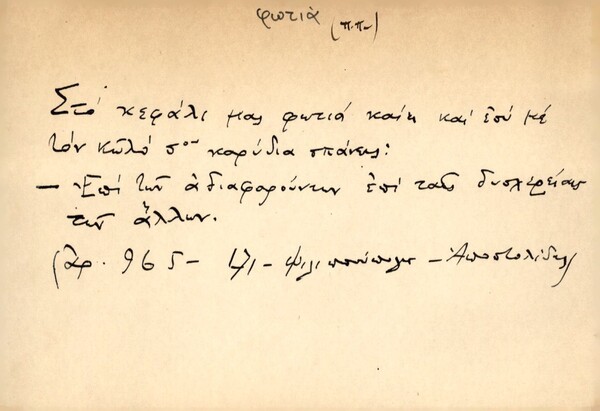 φωτιά (π.π.)
Στό κεφάλι μας φωτιά καίη καί ἐσύ μέ
τόν κῶλό σου καρύδια σπάνεις:
— Ἐπί τῶν ἀδιαφορούντων ἐπί ταῖς δυσχερείαις
τῶν ἄλλων.
(ἀρ. 965 – – Φιλιππούπολις – Ἀποστολίδης)